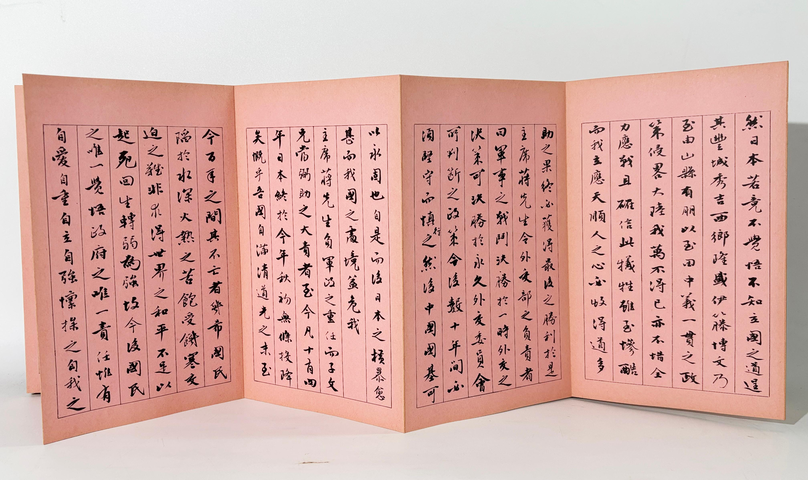 然日本若竟不覺悟不知立國之道逞
其豐城秀吉西鄉隆盛伊藤博文乃
至由山縣有朋以至田中義一貫之政
策侵畧大陸我萬不得已亦不惜全
力應戰且確信此犧牲雖至慘酷
而我立應天順人之心必收得道多
助之果終必獲得最後之勝利於是
主席蔣先生令外交部之負責者
曰軍事之戰鬥決勝於一時外交之
決策可決勝於永久外交委員會
所判斷之政策令後數十年間必
須堅守而慎行之然後中國國基可
以永固也自是而後日本之橫暴愈
甚而我國之處境益危我
主席蔣先生負軍政之重任而子文
先當弼助之大責者至今凡十有四
年日本終於今年秋初無條投降
矣慨乎吾國自滿清道光之末至
今百年之間其不亡者幾希國民
陷於水深火熱之苦飽受饑寒交
迫之難非求得世界之和平不足以
起死回生轉弱為強故今後國民
之唯一覺悟政府之唯一責任惟有
自愛自重自立自強懍操之自我之